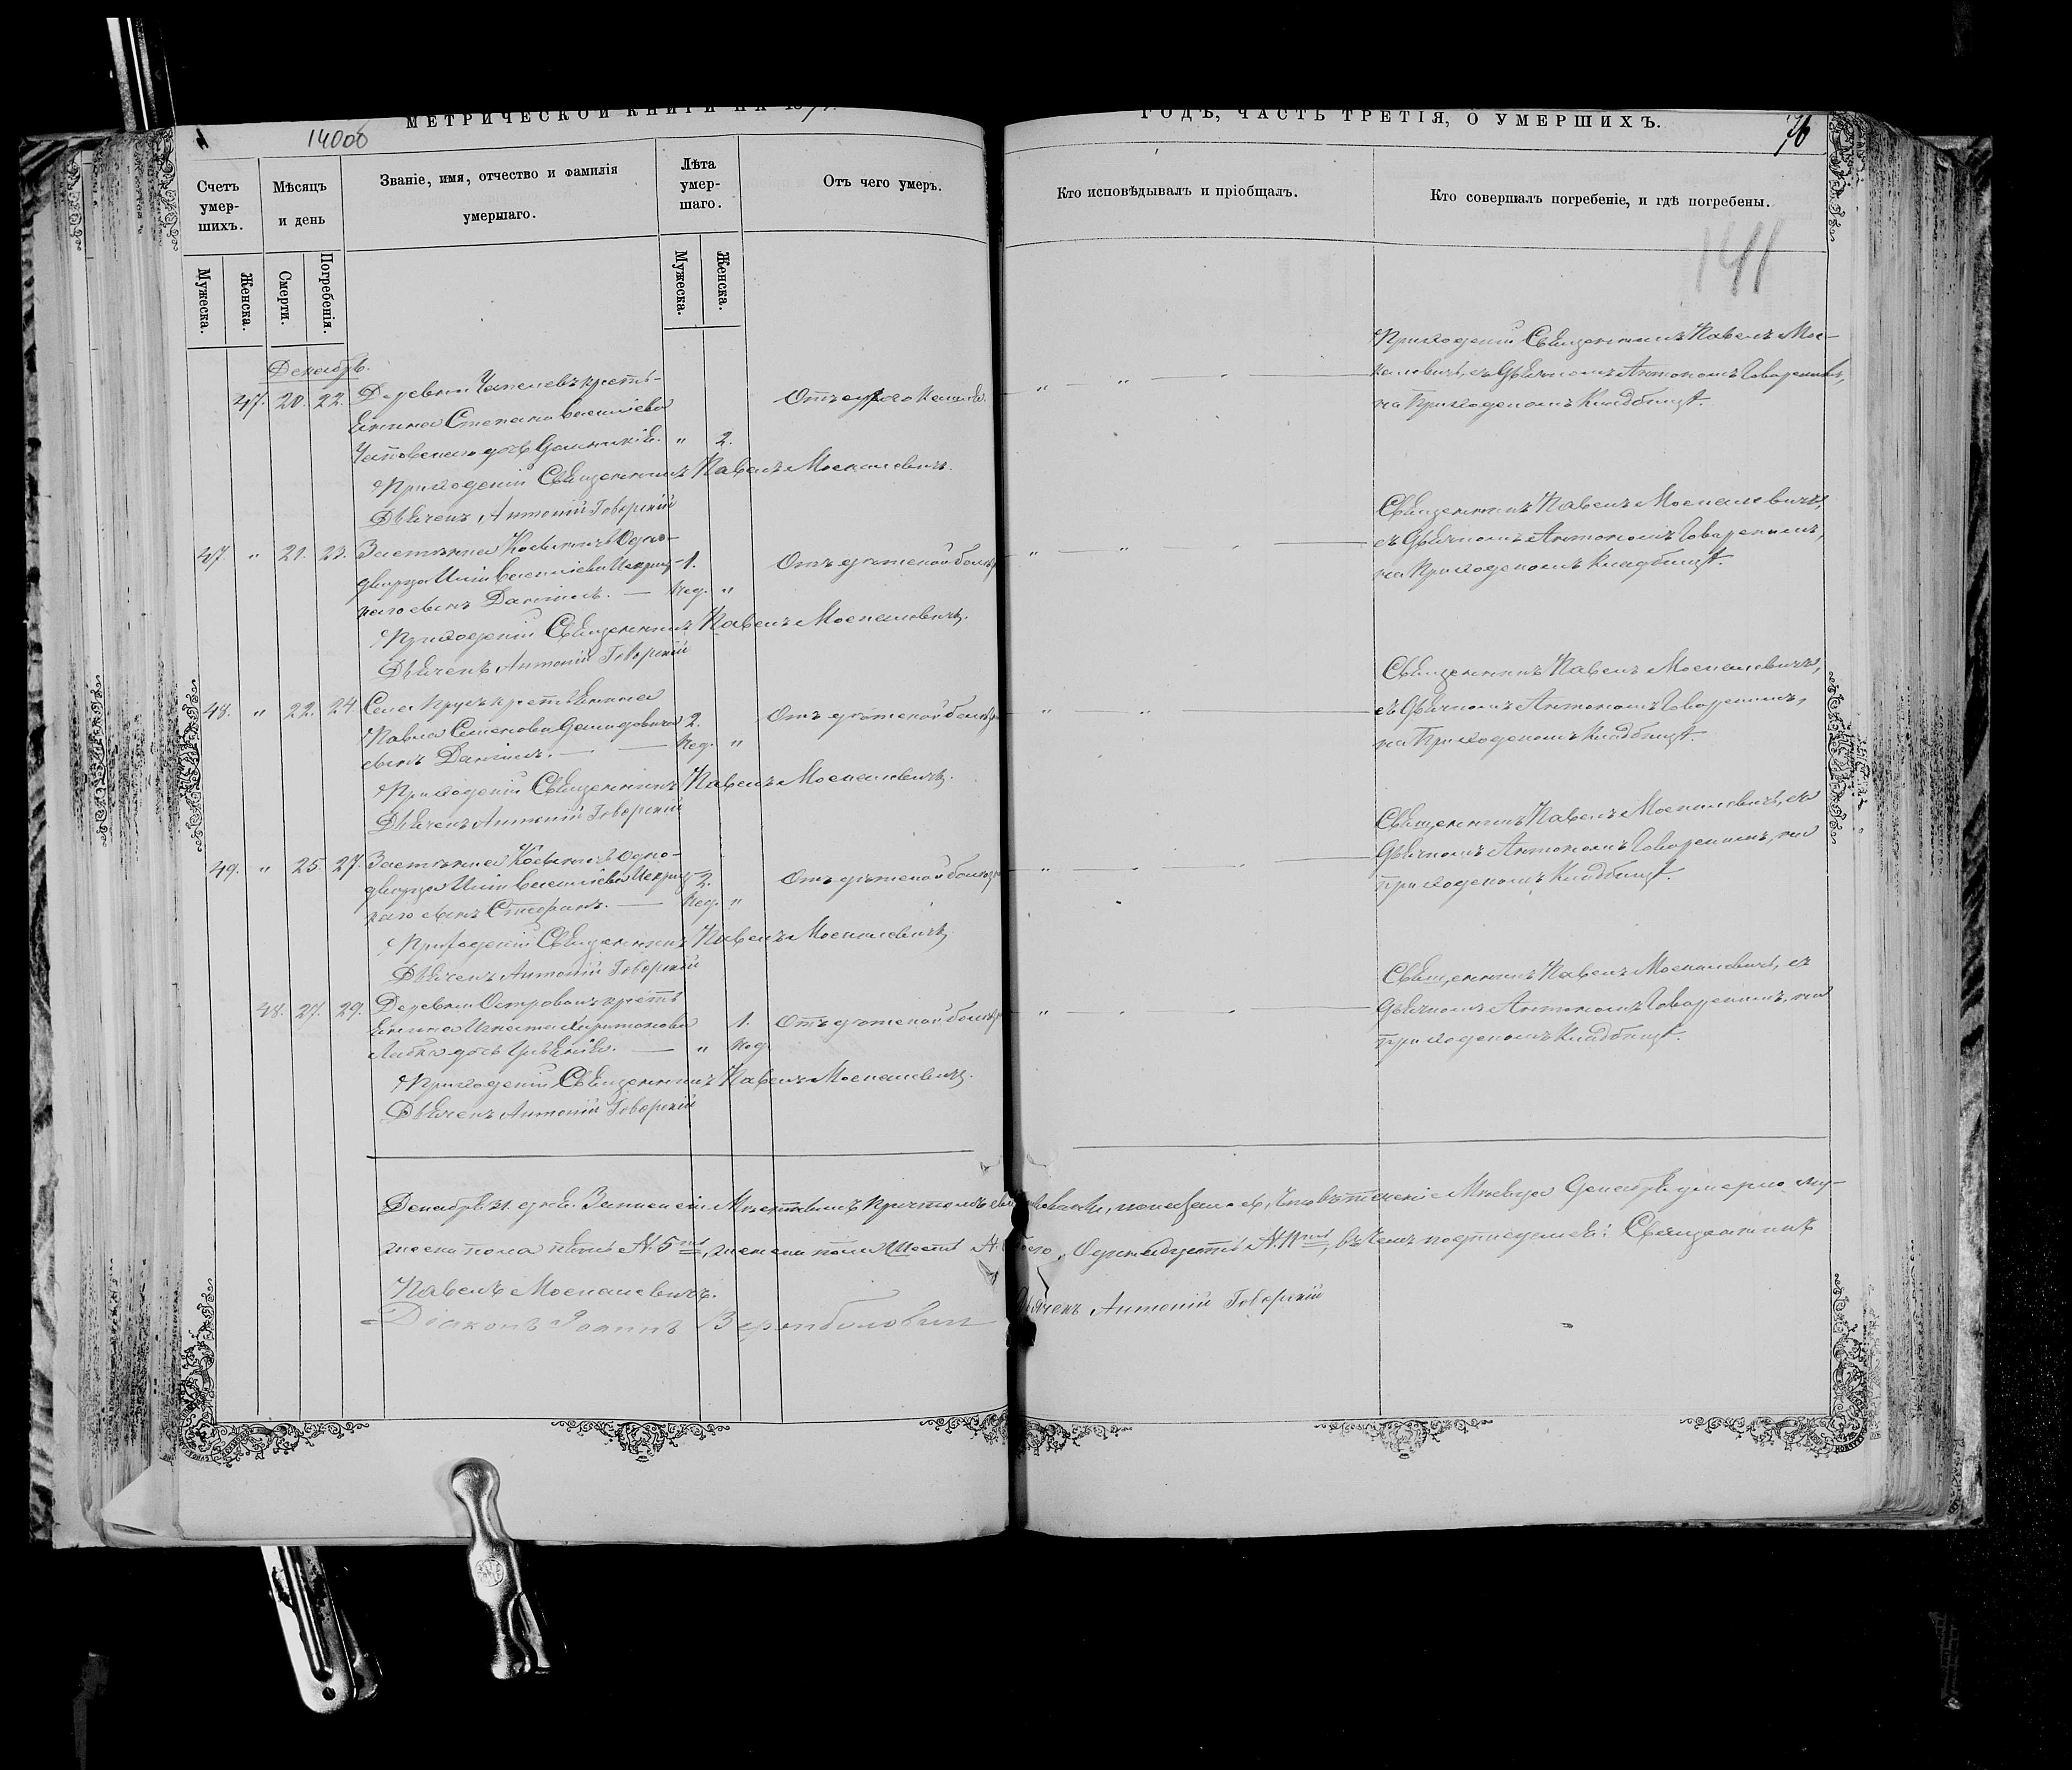 МЕТРИЧЕСКОЙ КНИГИ НА 187
ГОДЪ, ЧАСТЬ ТРЕТІЯ, О УМЕРШИХЪ.
14000
76
141
Счетъ умер-шихъ.
Мѣсяцъ и день
Званіе, имя, отчество и фамилія умершаго.
Лѣта умер-шаго.
Отъ чего умеръ.
Кто исповѣдывалъ и пріобщалъ.
Кто совершалъ погребеніе, и гдѣ погребены.
Мужеска.
Женска.
Смерти.
Погребенія.
Мужеска.
Женска.
Декабрь.
47. 20. 22. Деревни крестья-
янина Степана Василіева
дочь " 2.
Отъ сухого кашля.
Приходскій Священникъ Павелъ Мос-
калевичъ, съ Дьячкомъ Антоніемъ Говорскимъ,
на Приходскомъ Кладбищѣ.
Приходскій Священникъ Павелъ Москалевичъ.
Дьячекъ Антоній Говорскій
47. " 21. 23. Застѣнка Одно-
дворца Василіева 1.
сынъ Даніилъ. — Нед. "
Отъ дѣтской болѣзни
Священникъ Павелъ Москалевичъ,
съ Дьячкомъ Антоніемъ Говорскимъ,
на Приходскомъ Кладбищѣ.
Приходскій Священникъ Павелъ Москалевичъ.
Дьячекъ Антоній Говорскій
48. " 22. 24 Села крестьянина
Павла Семенова 2.
сынъ Даніилъ. — Нед. "
Отъ дѣтской болѣзни
Священникъ Павелъ Москалевичъ,
съ Дьячкомъ Антоніемъ Говорскимъ,
на Приходскомъ Кладбищѣ.
Приходскій Священникъ Павелъ Москалевичъ.
Дьячекъ Антоній Говорскій
49. " 25. 27. Застѣнка Одно-
дворца Василіева 2.
сынъ Стефанъ. — Нед. "
Отъ дѣтской болѣзни
Священникъ Павелъ Москалевичъ, съ
Дьячкомъ Антоніемъ Говорскимъ, на
приходскомъ Кладбищѣ.
Приходскій Священникъ Павелъ Москалевичъ.
Дьячекъ Антоній Говорскій
48. 27. 29. Деревни крестья
янина Игната Харитонова 1.
дочь — " Нед.
Отъ дѣтской болѣзни
Священникъ Павелъ Москалевичъ, съ
Дьячкомъ Антоніемъ Говорскимъ, на
приходскомъ Кладбищѣ.
Приходскій Священникъ Павелъ Москалевичъ.
Дьячекъ Антоній Говорскій
Декабря 31. дня. Мѣстнымъ Причтомъ теченіе Мѣсяца Декабря умерло му-
жеска пола пять № 5, женска пола шесть № № 11, въ чемъ подписуемся: Священникъ
Павелъ Москалевичъ.
Дьячекъ Антоній Говорскій
Діаконъ Іоаннъ